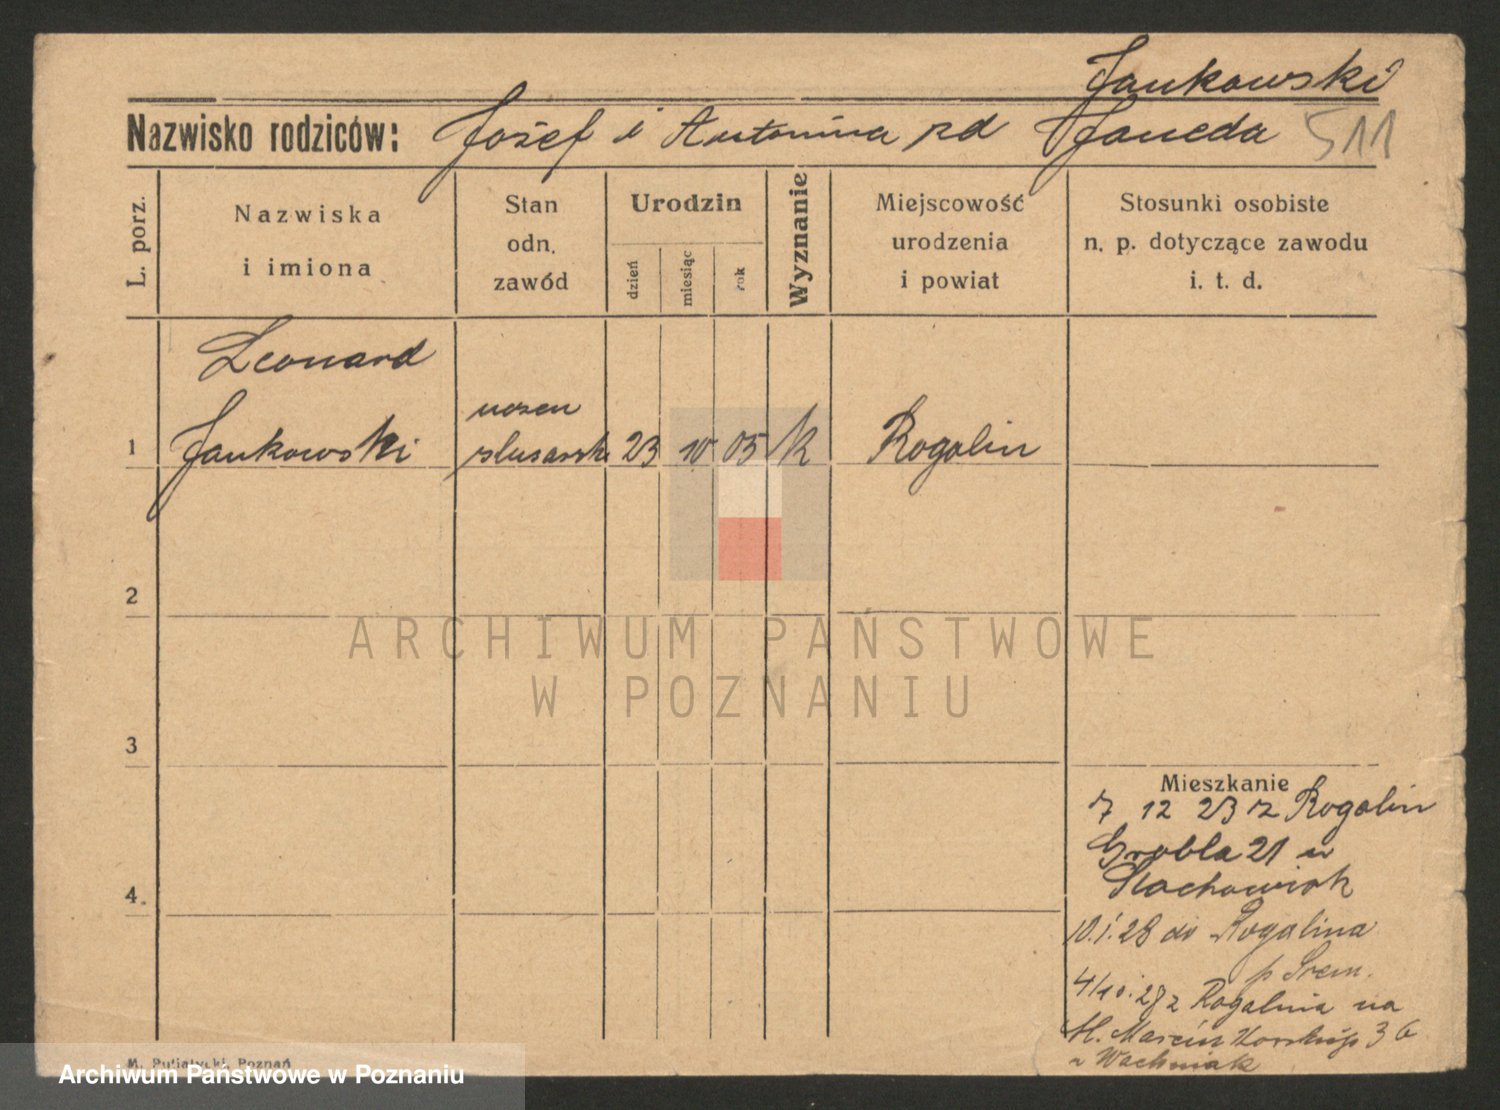 Jankowski
Nazwisko rodziców: Józef i Antonina zd Janeda 511
L. porz.
Nazwiska
i imiona
Stan
odn.
zawód
Urodzin
dzień
miesiąc
rok
Wyznanie
Miejscowość
urodzenia
i powiat
Stosunki osobiste
n. p. dotyczące zawodu
i. t. d.
Leonard
1 Jankowski
uczen
slusarsk 23 10 05 k Rogalin
2
ARCHIWUM PAŃSTWOWE
W POZNANIU
3
Mieszkanie
7 12 23 z Rogalin
4. Grobla 21 u
Stachowiak
10.1.28 do Rogalina
p Śrem.
4/10.28 z Rogalina na
Marcin 36
u Wachniak
M. Putiatycki, Poznań
Archiwum Państwowe w Poznaniu